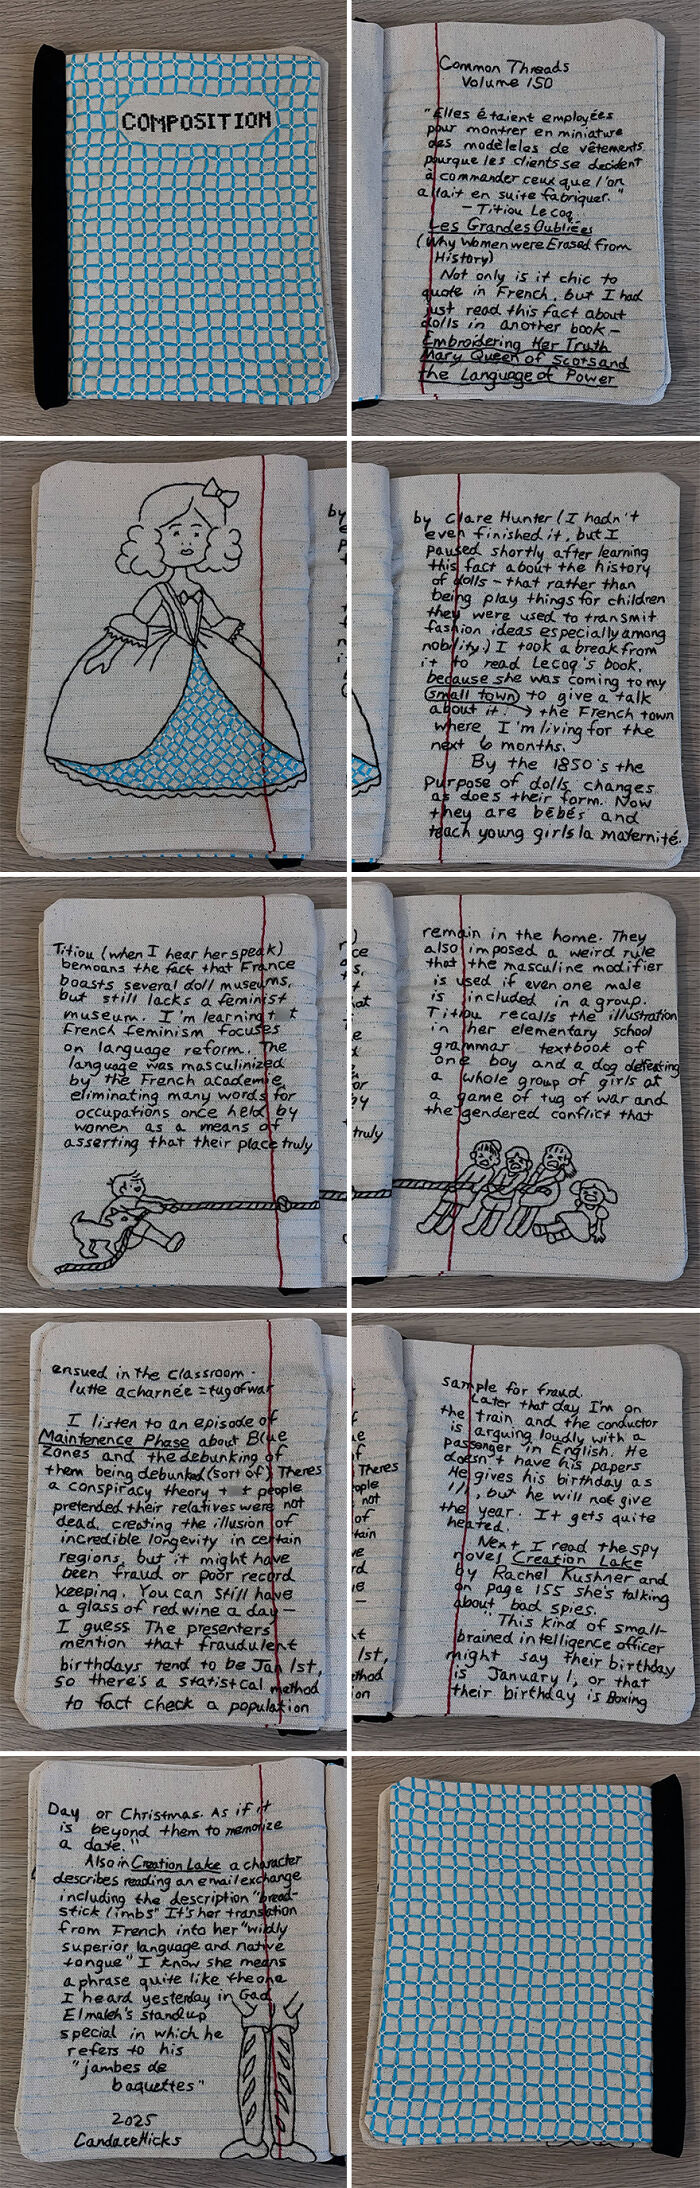 COMPOSITION
Common Threads
Volume 150
"Elles étaient employées
pour montrer en miniature
des modèleles de vêtements
pourque les clients se decident
à commander ceux que l'on
allait en suite fabriquer."
- Titiou Lecoq
Les Grandes Oubliées
(Why Women were Erased from
History)
Not only is it chic to
quote in French, but I had
just read this fact about
dolls in another book -
Embroidering Her Truth
Mary Queen of Scots and
the Language of Power
by Clare Hunter (I hadn't
even finished it, but I
paused shortly after learning
this fact about the history
of dolls - that rather than
being play things for children
they were used to transmit
fashion ideas especially among
nobility.) I took a break from
it to read Lecoq's book,
because she was coming to my
small town to give a talk
about it → the French town
where I'm living for the
next 6 months.
By the 1850's the
purpose of dolls changes
as does their form. Now
they are bébés and
teach young girls la maternité.
Titiou (when I hear her speak)
bemoans the fact that France
boasts several doll museums,
but still lacks a feminist
museum. I'm learning t t
French feminism focuses
on language reform. The
language was masculinized
by the French academie,
eliminating many words for
occupations once held by
women as a means of
asserting that their place truly
remain in the home. They
also imposed a weird rule
that the masculine modifier
is used if even one male
is included in a group.
Titiou recalls the illustration
in her elementary school
grammar textbook of
one boy and a dog defeating
a whole group of girls at
a game of tug of war and
the gendered conflict that
ensued in the classroom.
lutte acharnée = tug of war
I listen to an episode of
Maintenence Phase about Blue
Zones and the debunking of
them being debunked (sort of) Theres
a conspiracy theory t t people
pretended their relatives were not
dead, creating the illusion of
incredible longevity in certain
regions, but it might have
been fraud or poor record
keeping. You can still have
a glass of red wine a day -
I guess The presenters
mention that fraudulent
birthdays tend to be Jan 1st,
so there's a statistcal method
to fact check a population
sample for fraud.
Later that day I'm on
the train and the conductor
is arguing loudly with a
passenger in English. He
doesn't have his papers
He gives his birthday as
1/1, but he will not give
the year. It gets quite
heated.
Next I read the spy
novel Creation Lake
by Rachel Kushner and
on page 155 she's talking
about bad spies.
"This kind of small-
brained intelligence officer
might say their birthday
is January 1, or that
their birthday is Boxing
Day or Christmas. As if it
is beyond them to memorize
a date."
Also in Creation Lake a character
describes reading an email exchange
including the description "bread-
stick limbs" It's her translation
from French into her "wildly
superior language and native
tongue" I know she means
a phrase quite like the one
I heard yesterday in Gad
Elmaleh's standup
special in which he
refers to his
"jambes de
baguettes"
2025
Candace Hicks